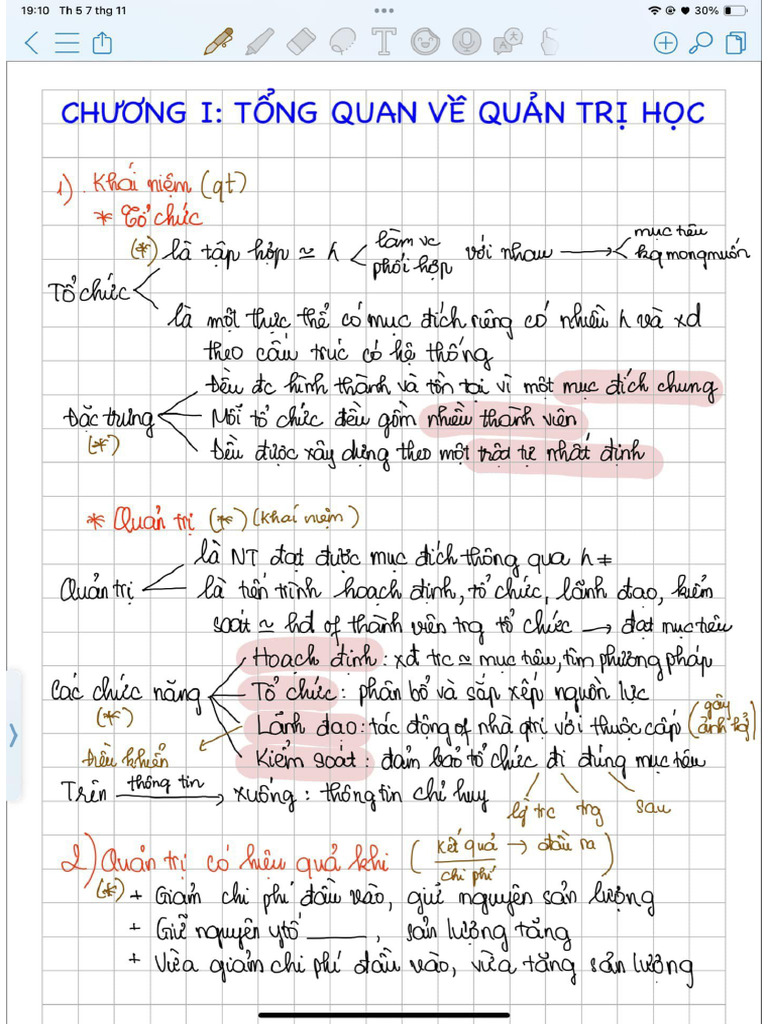 19:10 Th 5 7 thg 11
30%
CHƯƠNG I: TỔNG QUAN VỀ QUẢN TRỊ HỌC
1) Khái niệm (qt)
* Tổ chức
(*) là tập hợp ≃ h làm vc phối hợp với nhau → mục tiêu kq mong muốn
Tổ chức
là một thực thể có mục đích riêng có nhiều h và xd
theo cấu trúc có hệ thống
Đều đc hình thành và tồn tại vì một mục đích chung
Đặc trưng Mỗi tổ chức đều gồm nhiều thành viên
(*) Đều được xây dựng theo một trật tự nhất định
* Quản trị (*) (Khái niệm)
là NT đạt được mục đích thông qua h ≠
Quản trị là tiến trình hoạch định, tổ chức, lãnh đạo, kiểm
soát ≃ hđ of thành viên trg tổ chức → đạt mục tiêu
Hoạch định: xđ trc ≃ mục tiêu, tìm phương pháp
Các chức năng Tổ chức: phân bổ và sắp xếp nguồn lực
(*) Lãnh đạo: tác động of nhà qtrị với thuộc cấp (gây ảnh hg)
điều khiển Kiểm soát: đảm bảo tổ chức đi đúng mục tiêu
Trên thông tin → xuống: thông tin chỉ huy
trc trg sau
2) Quản trị có hiệu quả khi (kết quả → đầu ra
chi phí)
(*) + Giảm chi phí đầu vào, giữ nguyên sản lượng
+ Giữ nguyên ytố ____, sản lượng tăng
+ Vừa giảm chi phí đầu vào, vừa tăng sản lượng